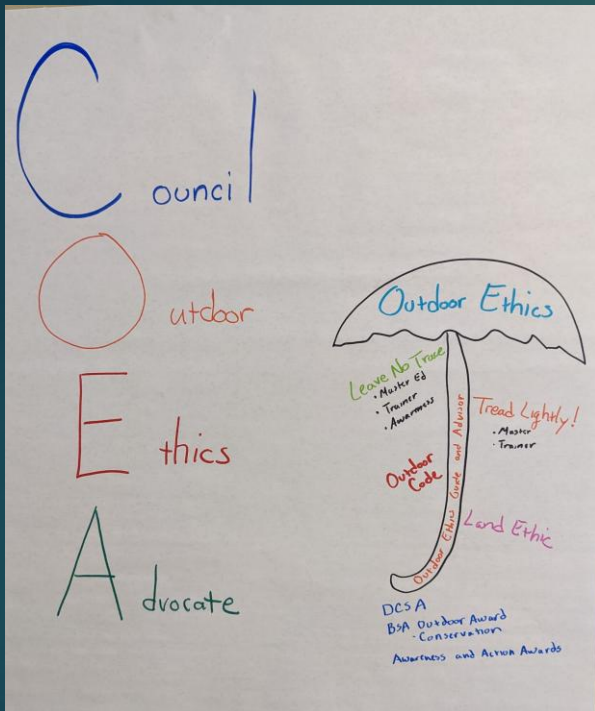 Council
Outdoor
Ethics
Advocate
Outdoor Ethics
Leave No Trace
• Master Ed
• Trainer
• Awareness
Tread Lightly!
• Master
• Trainer
Outdoor
Code
Outdoor Ethics Guide and Advisor
Land Ethic
DCSA
BSA Outdoor Award
• Conservation
Awareness and Action Awards